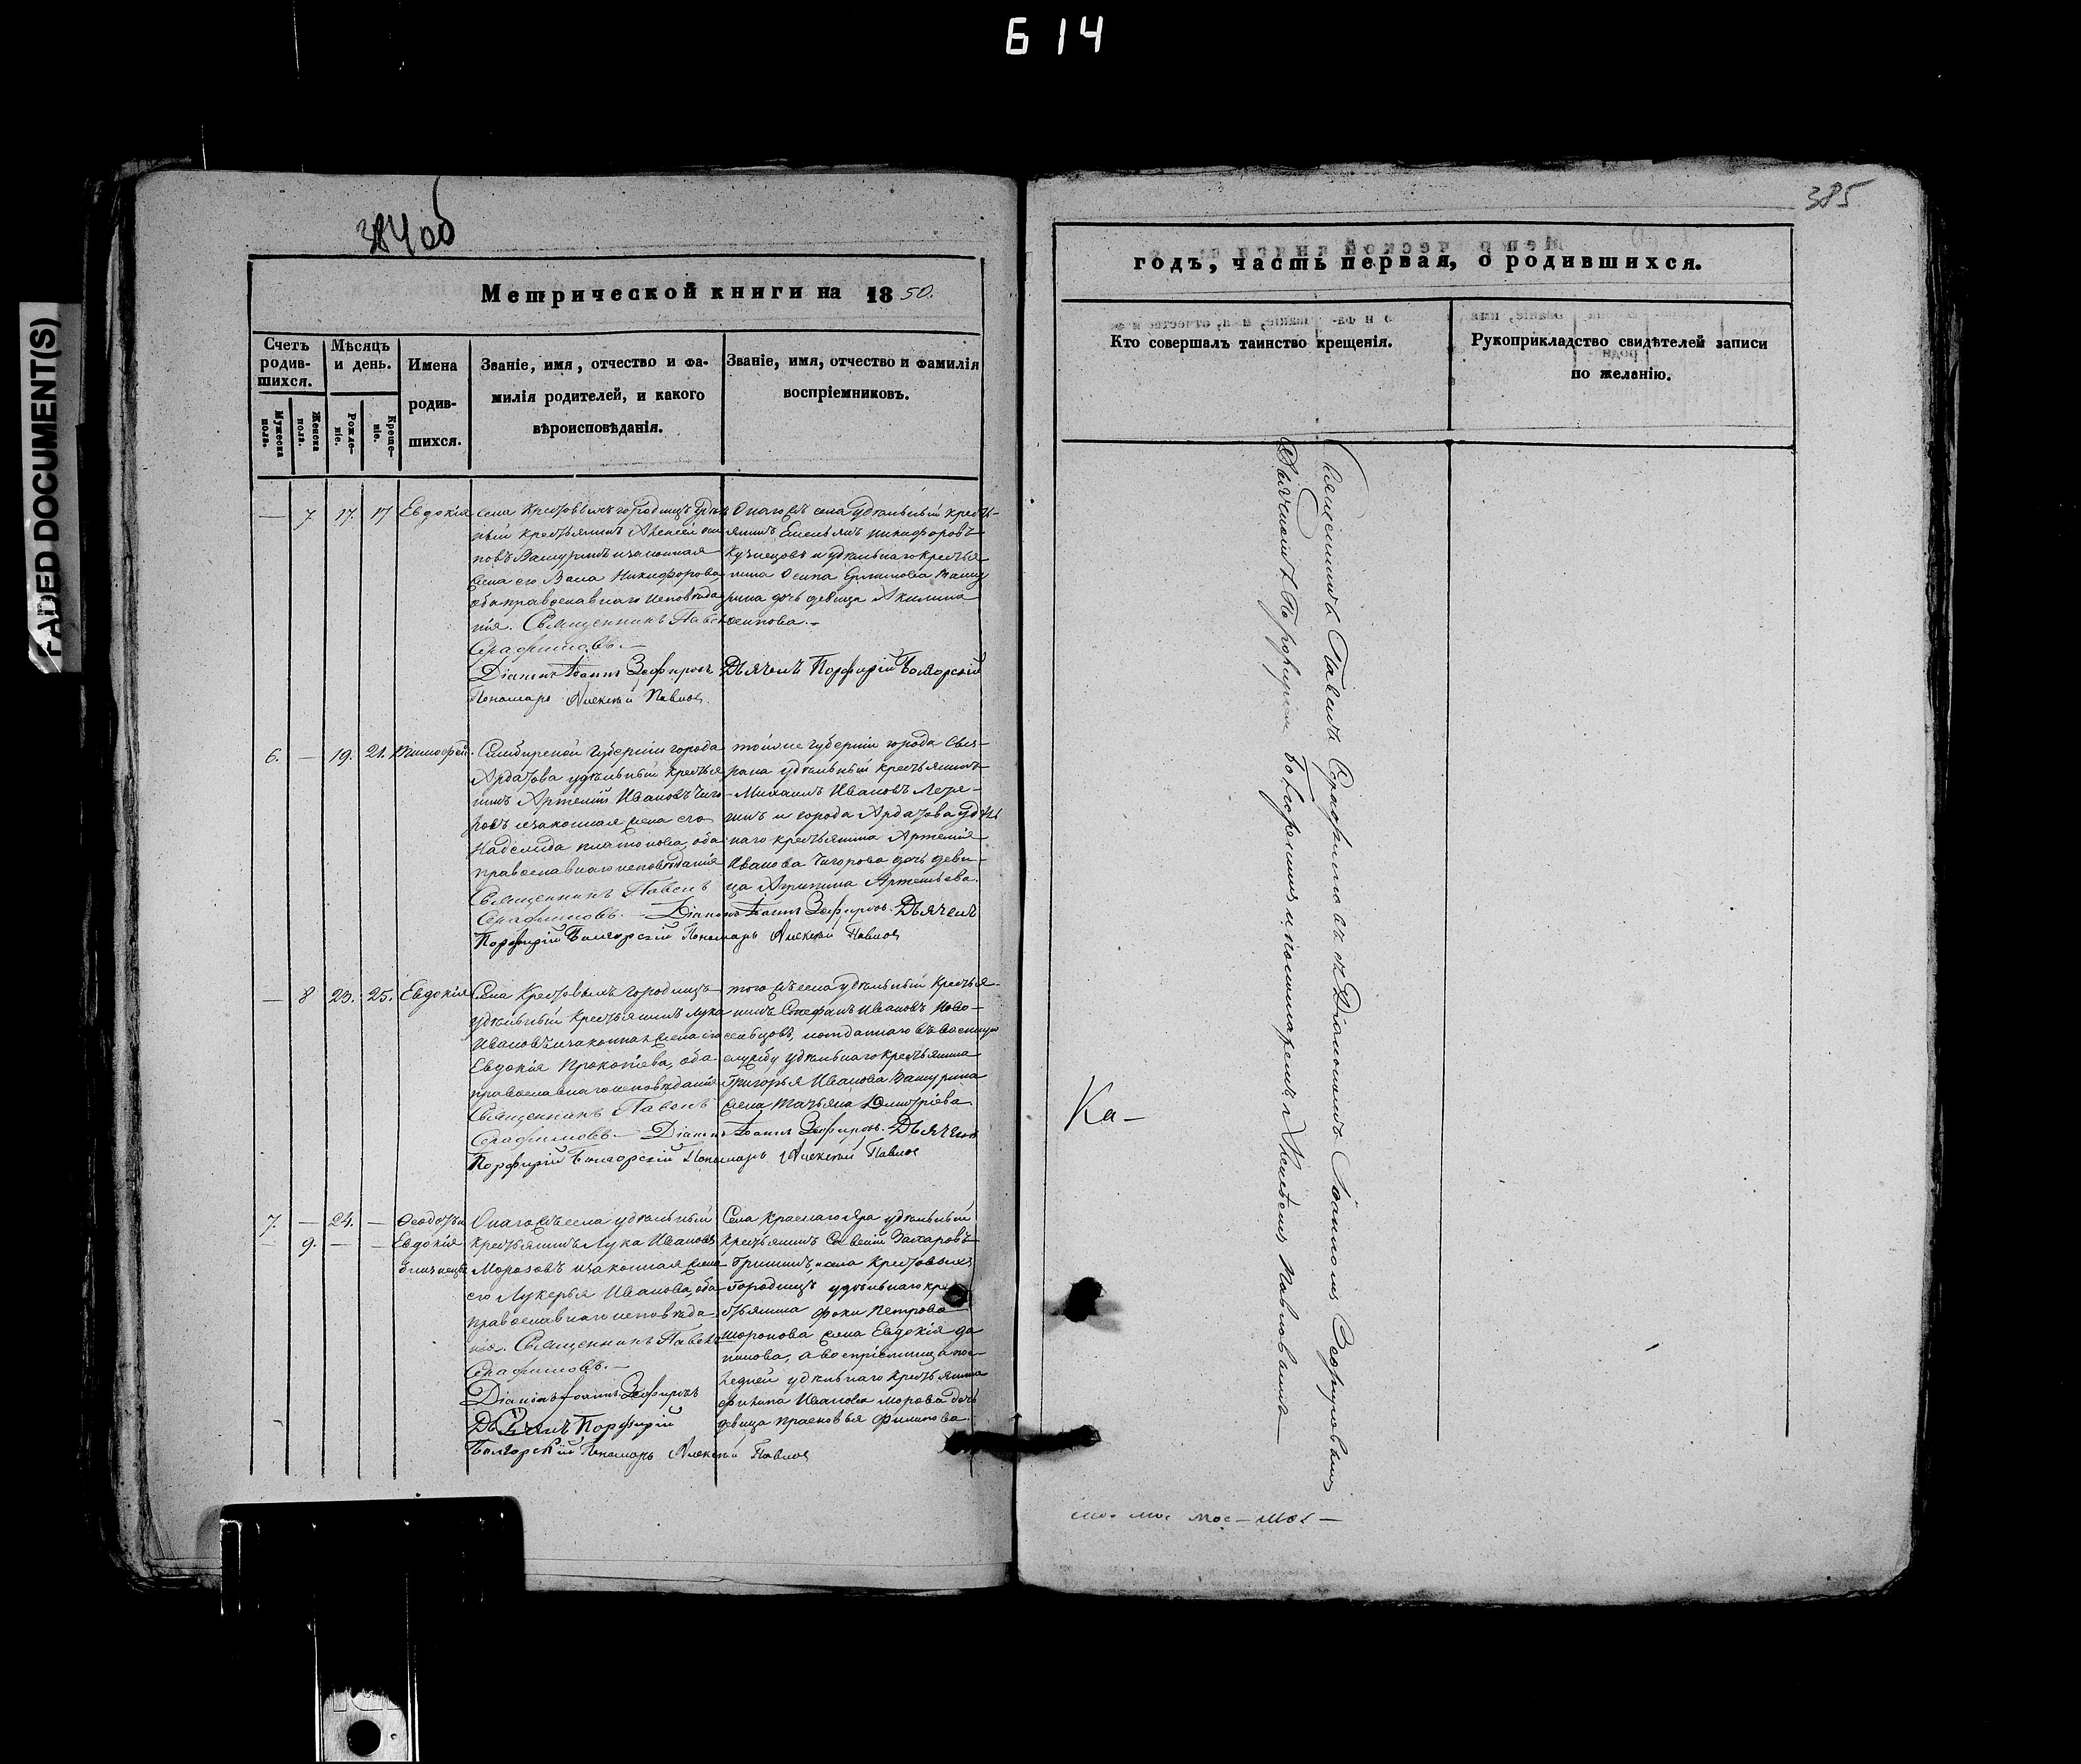 614
FADED DOCUMENT(S)
384 об
Метрической книги на 1850.
Счетъ родившихся.
Мужеска полъ.
Женска полъ.
Мѣсяцъ и день.
Рожденіе.
Крещеніе.
Имена родившихся.
Званіе, имя, отчество и фамилія родителей, и какого вѣроисповѣданія.
Званіе, имя, отчество и фамилія воспріемниковъ.
— 7 17. 17 Евдокія
села Крестовыхъ городищъ
ный крестьянинъ Алексей
новъ Вашуринъ изаконная
жена его Васа Никифорова
оба православнаго исповѣда
нія. Священникъ Павелъ
Серафимовъ.—
Діаконъ Іоаннъ Зефировъ
Онаго жъ села удѣльный кресть-
янинъ Емельянъ никифоровъ
Кузнецовъ и удѣльнаго крестья
нина Осипа
рина дочь девица Акилина
осипова.—
Дьячекъ Порфирій Болгорскій
Пономарь Алексѣй Павлов
6. — 19. 21. Тимофей.
Симбирской Губерніи города
Ардатова удѣльный крестья
нинъ Артемій Ивановъ Чиго
ровъ изаконная жена его
Надежда платонова, оба
православнаго исповѣданія
Священникъ Павелъ
Серафимовъ.— Діаконъ Іоаннъ Зефировъ. Дьячекъ
Порфирій Болгорскій Пономарь Алексѣй Павлов
той же губерніи города Сыз-
рана удѣльный крестьянинъ
Михаилъ Ивановъ
и города Ардатова удѣль
наго крестьянина Артемія
Иванова Чигорова дочь деви-
ца Агрипина Артемьева.
— 8 23. 25. Евдокія
Села Крестовыхъ городищъ
удѣльный Крестьянинъ лука
Ивановъ изаконная жена его
Евдокія Прокопіева, оба
православнаго исповѣданія
Священникъ Павелъ
Серафимовъ.— Діаконъ Іоаннъ Зефировъ. Дьячекъ
Порфирій Болгорскій Пономарь Алексѣй Павлов
того жъ села удѣльный Крестья-
нинъ Стефанъ Ивановъ Ново-
сельцовъ, и отданнаго въ военную
службу удѣльнаго крестьянина
Григорья Иванова Вашурина
жена татьяна Дмитріева
7. — 24. — Феодотъ и
— 9. — — Евдокія
близнецы
Онаго жъ села удѣльный
Крестьянинъ Лука Ивановъ
Морозовъ изаконная жена
его Лукерья Иванова, оба
православнаго исповѣда-
нія. Священникъ Павелъ
Серафимовъ.—
Діаконъ Іоаннъ Зефировъ
Дьячекъ Порфирій
Болгорскій Пономарь Алексѣй Павлов
Села краснаго яра удѣльный
Крестьянинъ Савелій Захаровъ
Гришинъ, и села Крестовыхъ
Городищъ удѣльнаго кре
стьянина фоки Петрова
жена Евдокія да
нилова, а воспріемница по-
ледней удѣльнаго крестьянина
филипа Иванова морова дочь
девица прасковья филипова.
385
годъ, часть первая, о родившихся.
Кто совершалъ таинство крещенія.
Рукоприкладство свидѣтелей записи по желанію.
Священникъ Павелъ Серафимовъ съ Діакономъ Іоанномъ Зефировымъ
Дьячкомъ Порфиріемъ Болгорскимъ и пономаремъ Алексѣемъ Павловымъ—
Ка—